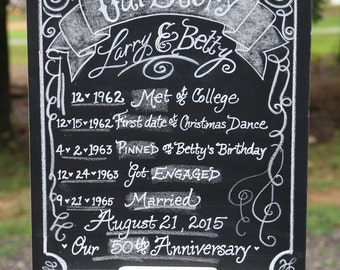 Our Story
Larry & Betty
12 ♥ 1962 Met @ College
12 ♥ 15 ♥ 1962 First date @ Christmas Dance
4 ♥ 2 ♥ 1963 PINNED @ Betty's Birthday
12 ♥ 24 ♥ 1963 Got ENGAGED
9 ♥ 21 ♥ 1965 Married
August 21, 2015
Our 50th Anniversary